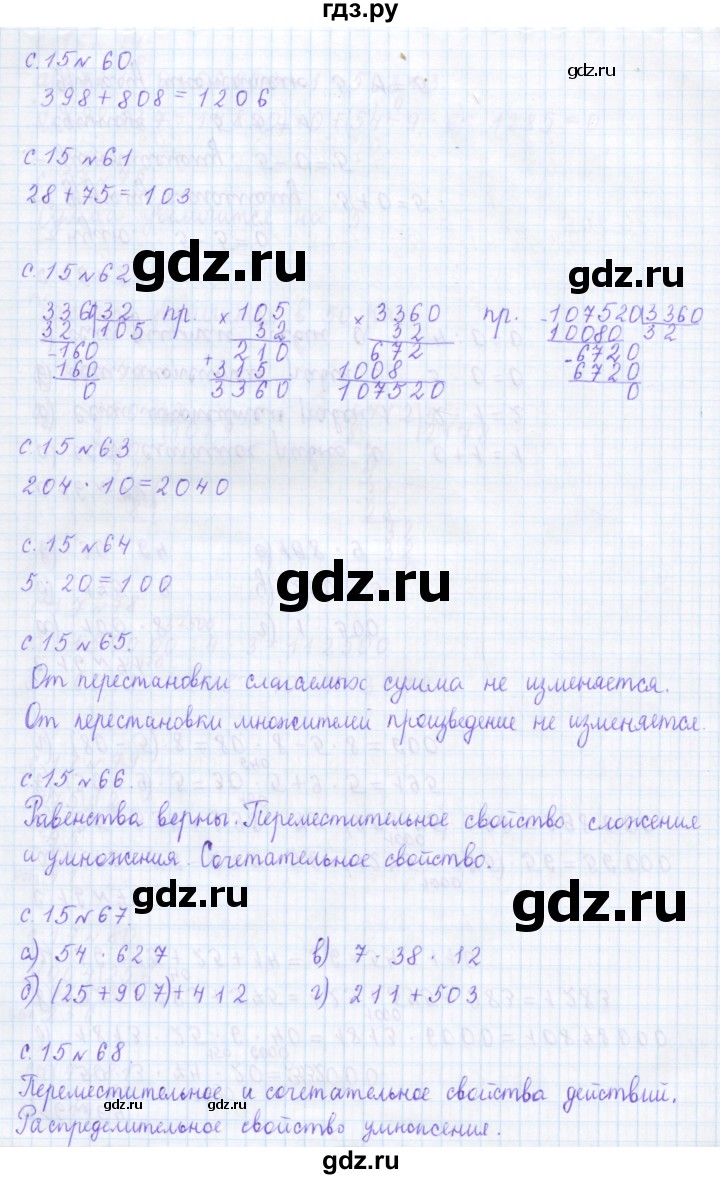 гдз.ру
с.15 № 60.
gdz.ru
398+808=1206
с.15 № 61
28+75=103
gdz.ru
с.15 № 62
gdz.ru
3360|32 пр. × 105 × 3360 пр. - 107520|3360
32 |105 32 32 10080 32
-160 210 672 -6720
160 + 315 1008 6720
0 3360 107520 0
с.15 № 63
204 · 10=2040
с.15 № 64
gdz.ru
5 · 20=100
с.15 № 65.
От перестановки слагаемых сумма не изменяется.
От перестановки множителей произведение не изменяется.
с.15 № 66.
Равенства верны. Переместительное свойство сложения
и умножения. Сочетательное свойство.
gdz.ru
gdz.ru
с.15 № 67.
а) 54 · 627 в) 7 · 38 · 12
б) (25+907)+412 г) 211+503
с.15 № 68.
Переместительное и сочетательное свойства действий.
gdz.ru
gdz.ru
Распределительное свойство умножения.
gdz.ru